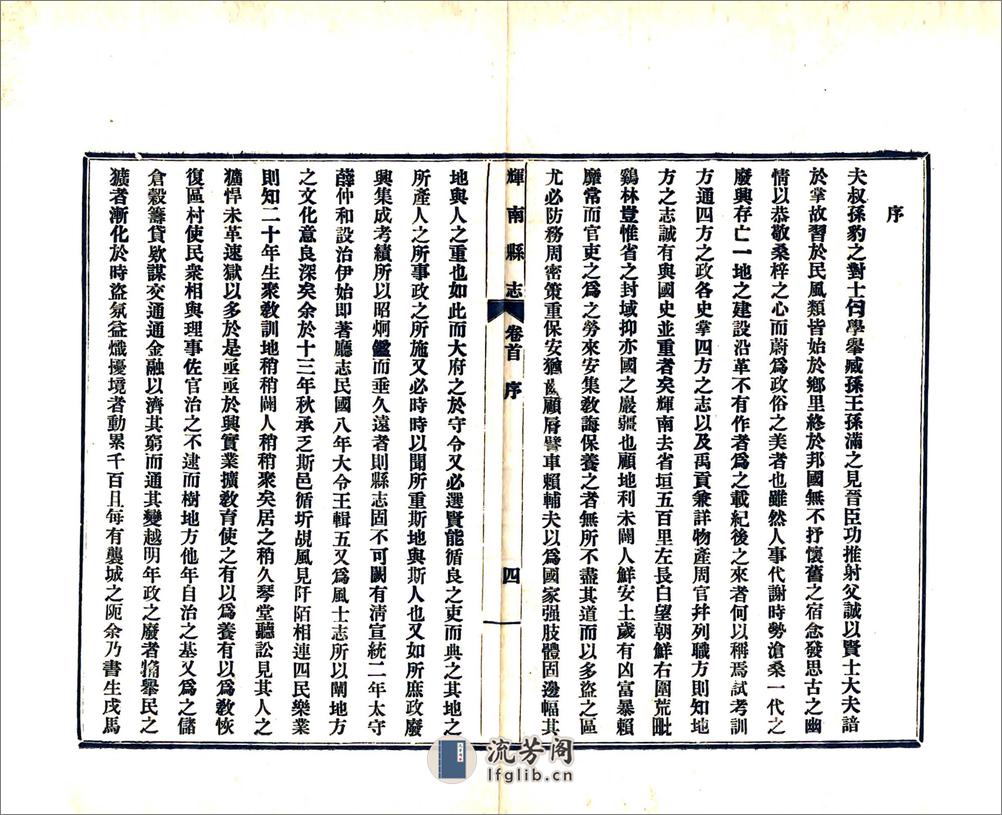 序
夫叔孫豹之對士匄學舉臧孫王孫滿之見晉臣功推射父誠以賢士大夫諳
於掌故習於民風類皆始於鄉里終於邦國無不抒懷舊之宿念發思古之幽
情以恭敬桑梓之心而蔚爲政俗之美者也雖然人事代謝時勢滄桑一代之
廢興存亡一地之建設沿革不有作者爲之載紀後之來者何以稱焉試考訓
方通四方之政各史掌四方之志以及禹貢兼詳物產周官幷列職方則知地
方之志誠有與國史並重者矣輝南去省垣五百里左長白望朝鮮右圍荒毗
鷄林豈惟省之封域抑亦國之巖疆也顧地利未闢人鮮安土歲有凶富暴賴
靡常而官吏之爲之勞來安集敎誨保養之者無所不盡其道而以多盜之區
尤必防務周密策重保安雖齒顧脣譬車賴輔夫以爲國家强肢體固邊幅其
輝南縣志 卷首 序 四
地與人之重也如此而大府之於守令又必選賢能循良之吏而典之其地之
所產人之所事政之所施又必時時以聞所重斯地與斯人也又如所庶政廢
興集成考績所以昭炯鑑而垂久遠者則縣志固不可闕有清宣統二年太守
薛仲和設治伊始即著廳志民國八年大令王輯五又爲風士志所以闡地方
之文化意良深矣余於十三年秋承乏斯邑循圻覘風見阡陌相連四民樂業
則知二十年生聚敎訓地稍稍闢人稍稍聚矣居之稍久琴堂聽訟見其人之
獷悍未革速獄以多於是亟亟於興實業擴敎育使之有以爲養有以爲敎恢
復區村使民衆相與理事佐官治之不逮而樹地方他年自治之基又爲之儲
倉穀籌貸欵謀交通通金融以濟其窮而通其變越明年政之廢者脩舉民之
獷者漸化於時盜氛益熾擾境者動累千百且每有襲城之阨余乃書生戌馬
流芳阁
lfglib.cn